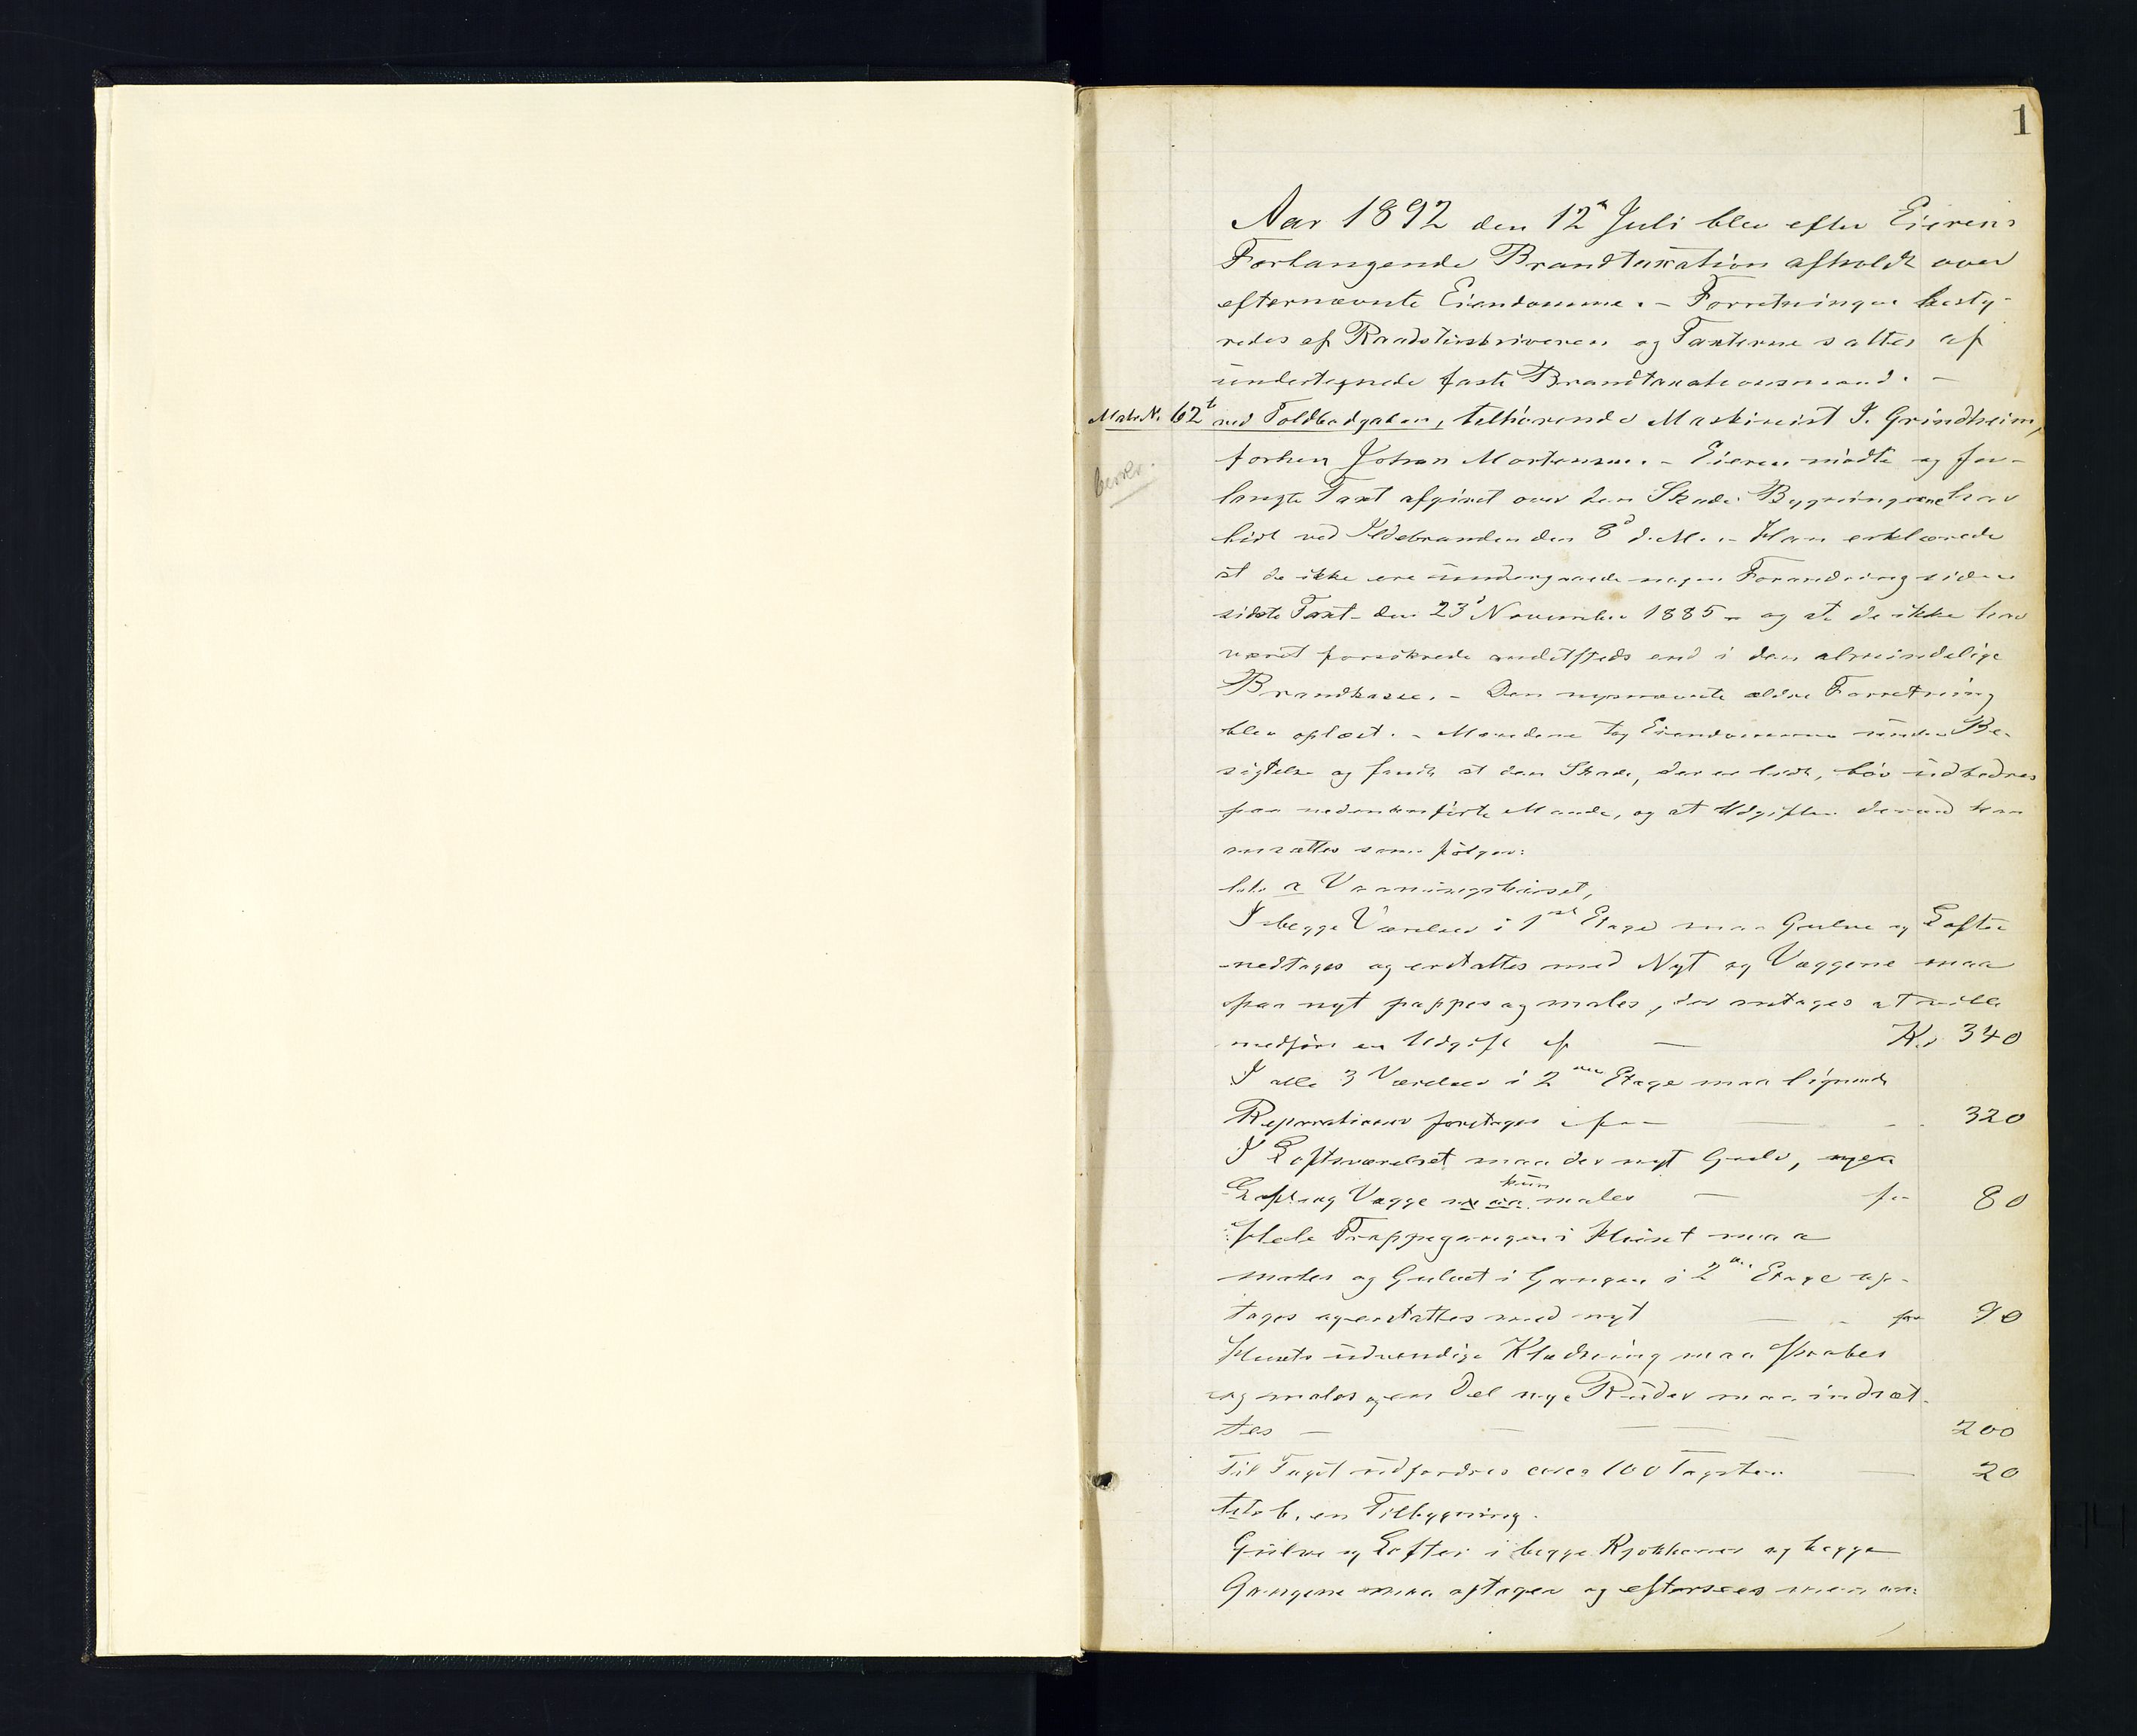 1
Aar 1892 den 12te Juli blev efter Eierens
Forlangende Brandtaxation afholdt over
efternævnte Eiendomme. – Forretningen besty-
redes af Raadstueskriveren og Taxterne sattes af
undertegnede faste Brandtaxationsmænd. –
Matr. N. 62b ved Toldbodgaden, tilhørende Maskinist I. Grindheim,
forhen Johan Mortensen. – Eieren mødte og for-
langte Taxt afgivet over den Skade Bygningerne har
lidt ved Ildebranden den 8d d. M. – Han erklærede
at de ikke ere undergaaede nogen Forandring siden
sidste Taxt den 23d November 1885 – og at de ikke har
været forsikrede andetsteds end i den almindelige
Brandkasse. – Den nysnævnte ældre Forretning
blev oplæst. – Mændene tog Eiendommene under Be-
sigtelse og fandt at den Skade, der er lidt, bør udbedres
paa nedenanførte Maade, og at Udgiften derved kan
ansættes som følger:
litr. a Vaaningshuset,
I begge Værelser i 1ste Etage maa Gulve og Lofter
nedtages og erstattes med Nyt og Væggene maa
paa nyt pappes og males, der antages at ville
medføre en Udgift af — Kr. 340
I alle 3 Værelser i 2den Etage maa lignende
Reparationer foretages for — 320
I Loftsværelset maa der nyt Gulv, nye
Loft og Vægge maa kun males — for 80
Hele Trappegangen i Huset maa
males og Gulvet i Gangen i 2den Etage op-
tages og erstattes med nyt — for 90
Husets udvendige Klædning maa skrabes
og males og en Del nye Ruder maa indsæt-
tes — 200
Til Taget udfordres circa 100 Tagsten — 20
litr. b. en Tilbygning.
Gulve og Lofter i begge Kjøkkener og begge
Gangene maa optages og eftersees men